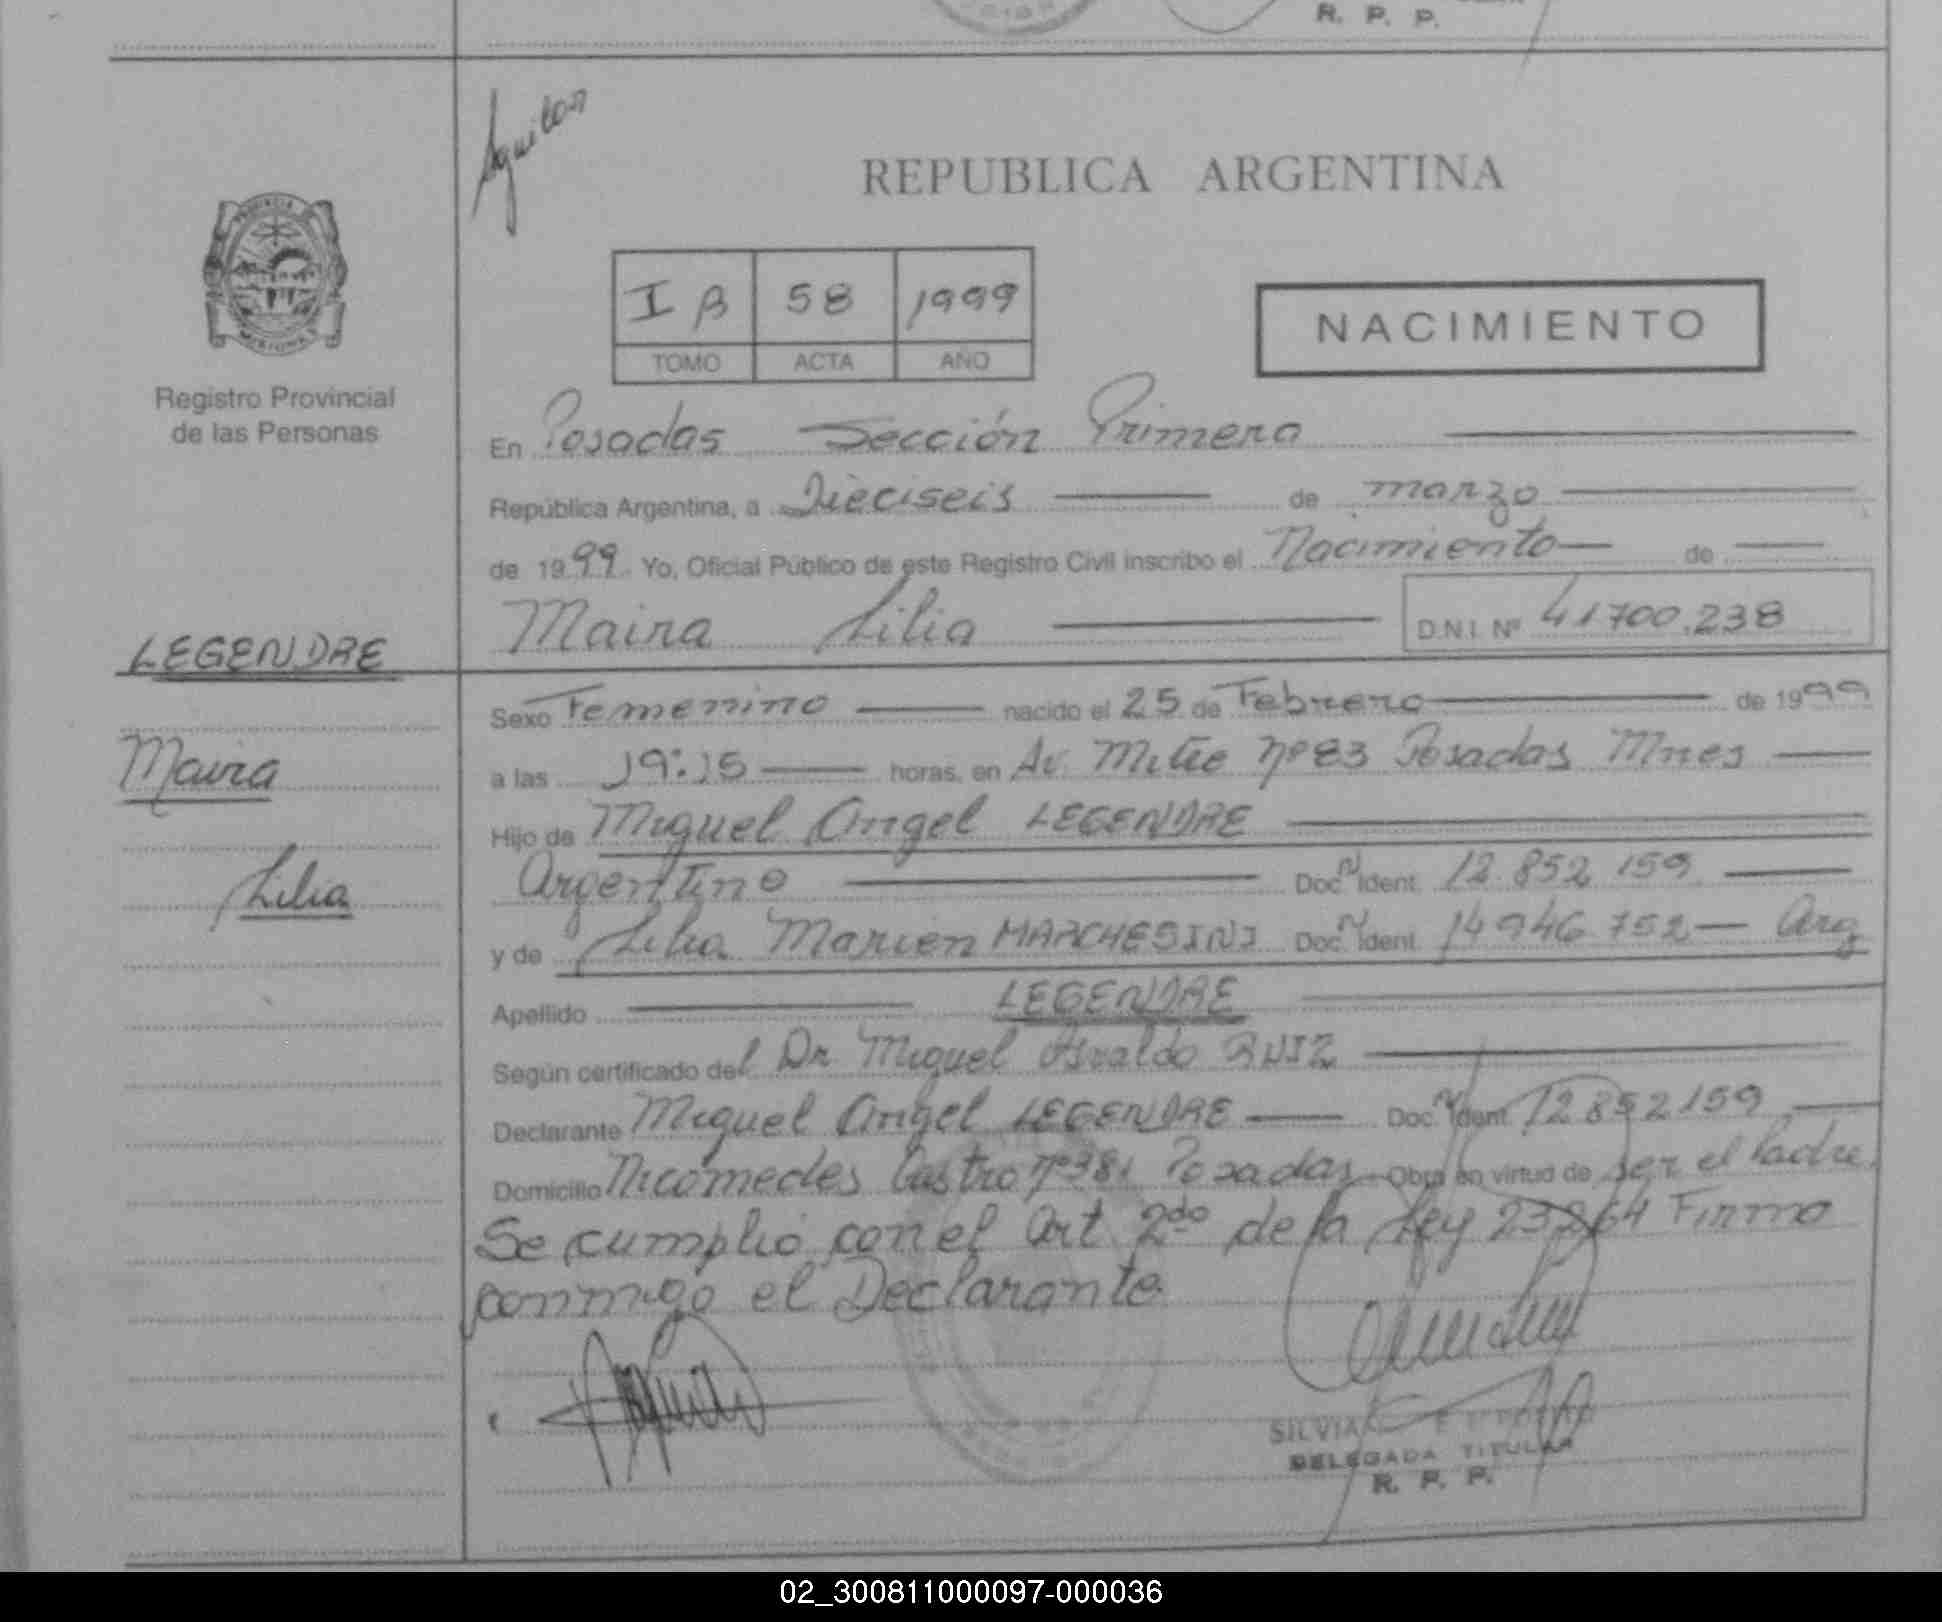 R. P. P.
Aguilar
REPUBLICA ARGENTINA
I B 58 1999
TOMO ACTA AÑO
NACIMIENTO
Registro Provincial
de las Personas
En Posadas Sección Primera
República Argentina, a Dieciseis de marzo
de 1999 Yo, Oficial Público de este Registro Civil inscribo el Nacimiento de
Maira Lilia D.N.I. Nº 41700.238
LEGENDRE
Maira
Lilia
Sexo Femenino nacido el 25 de Febrero de 1999
a las 19:15 horas, en Av. Mitre nº 83 Posadas Mnes
Hijo de Miguel Angel LEGENDRE
Argentino Doc. N Ident. 12.852 159
y de Lilia Marien MARCHESINI Doc. N Ident. 14946.752 Arg
Apellido LEGENDRE
Según certificado del Dr Miguel Osvaldo RUIZ
Declarante Miguel Angel LEGENDRE Doc. N Ident. 12852159
Domicilio Nicomedes Castro nº 381 Posadas Obra en virtud de ser el Padre.
Se cumplio con el Art 2do de la Ley 23264 Firmo
conmigo el Declarante.
SILVIA
DELEGADA TITULAR
R. P. P.
02_300811000097-000036